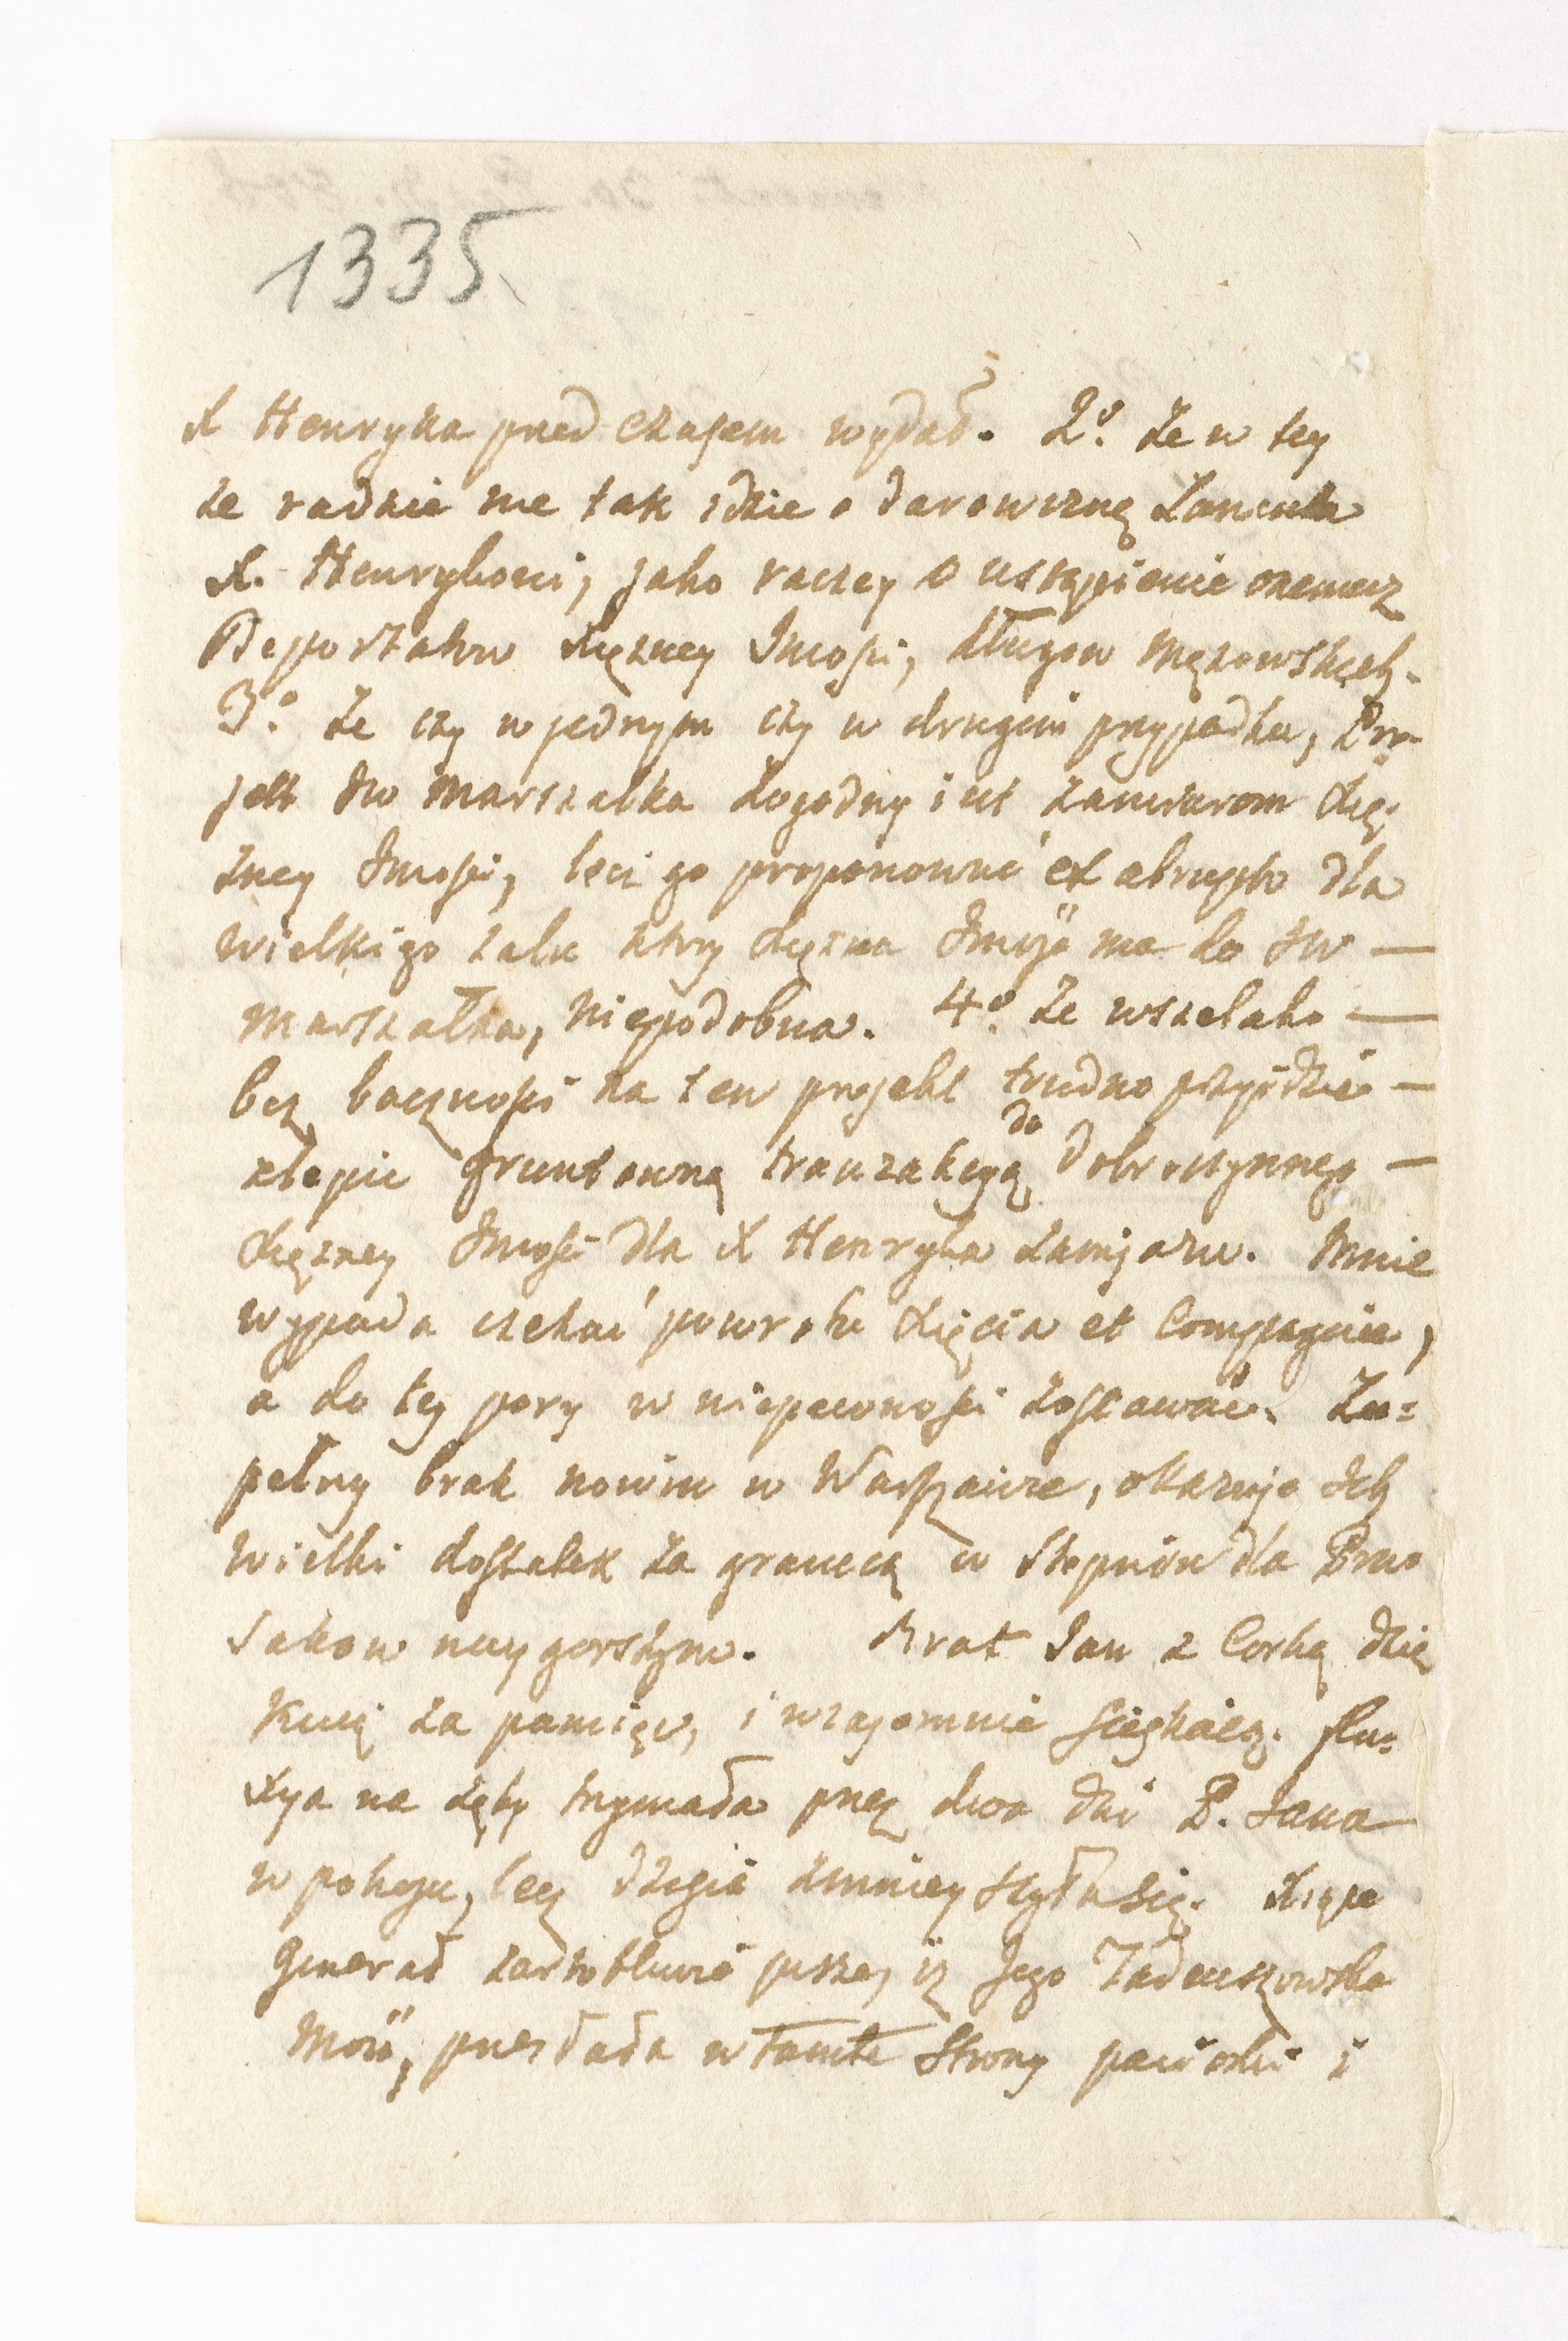 1335
X Henryka przed czasem wydał. 2º. że w tey
że radzie nie tak idzie o darowiznę Łancuta
X. Henrykowi, jako raczey o ustąpienie onemuż
Depertahw Xiężney Jmości, długow mężowskich.
3º. że czy w jednym czy w drugim przypadku, Pro-
jekt JW Marszałka dogodny jest zamiarom Xię-
żney Jmości, lecz go proponować ex abrupto dla
wielkiego żalu ktory Xiężna Jmość ma do JW —
Marszałka, niepodobna. 4º. że wszelako —
bez baczności na ten projekt trudno przyidzie —
zlepic gruntowną tranzakcyą do dobroczynnego —
Xiężney Jmości dla X Henryka zamiaru. Mnie
wypada czekać powrotu Xięcia et Compagnie,
a do tey pory w niepewności zostawać. Zu=
pełny brak nowin w Warszawie, okazuje Ich
wielki dostatek za granicą w stopniu dla Pru
sakow naygorszym. Brat Jan z Corką dzię
kuią za pamięć, i wzajemnie sciskaią. Flu=
xya na zęby trzymała przez dwa dni P. Jana
w pokoju, lecz dzisia zmnieyszyła się. Xiąże
Generał żartobliwie pisze, iż Jego Tadeuszowska
Mość, przesłała w tamte strony pawilon i